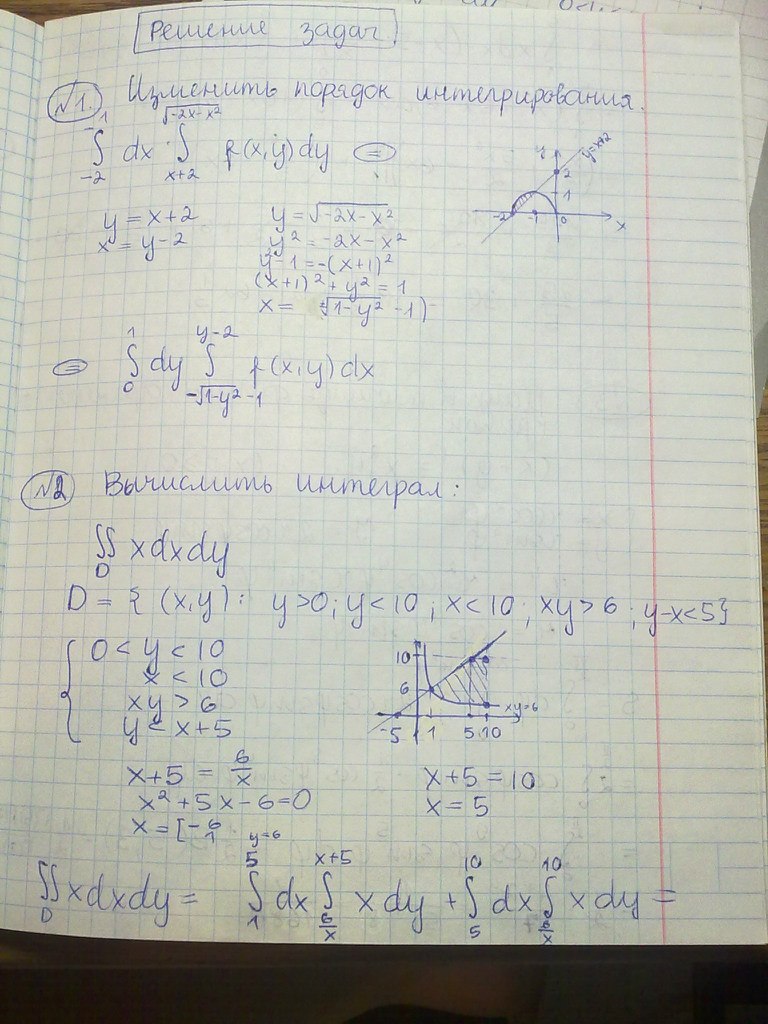 Решение задач
№1. Изменить порядок интегрирования.
∫_{-2}^{-1} dx ∫_{x+2}^{√(-2x-x²)} f(x,y)dy =
y y=x+2 2 1 -2 -1 0 x
y = x+2
x = y-2
y = √(-2x-x²)
y² = -2x-x²
y²-1 = -(x+1)²
(x+1)² + y² = 1
= ∫_{0}^{1} dy ∫_{-√(1-y²)-1}^{y-2} f(x,y)dx
№2 Вычислить интеграл:
∬_D xdxdy
D = { (x,y): y>0; y<10; x<10; xy>6; y-x<5}
{ 0 < y < 10
x < 10
xy > 6
y < x+5
10 6 xy=6 -5 1 5 10
x+5 = 6/x
x²+5x-6=0
x = [-6 1 y=6
x+5 = 10
x = 5
∬_D xdxdy = ∫_{1}^{5} dx ∫_{6/x}^{x+5} x dy + ∫_{5}^{10} dx ∫_{6/x}^{10} x dy =